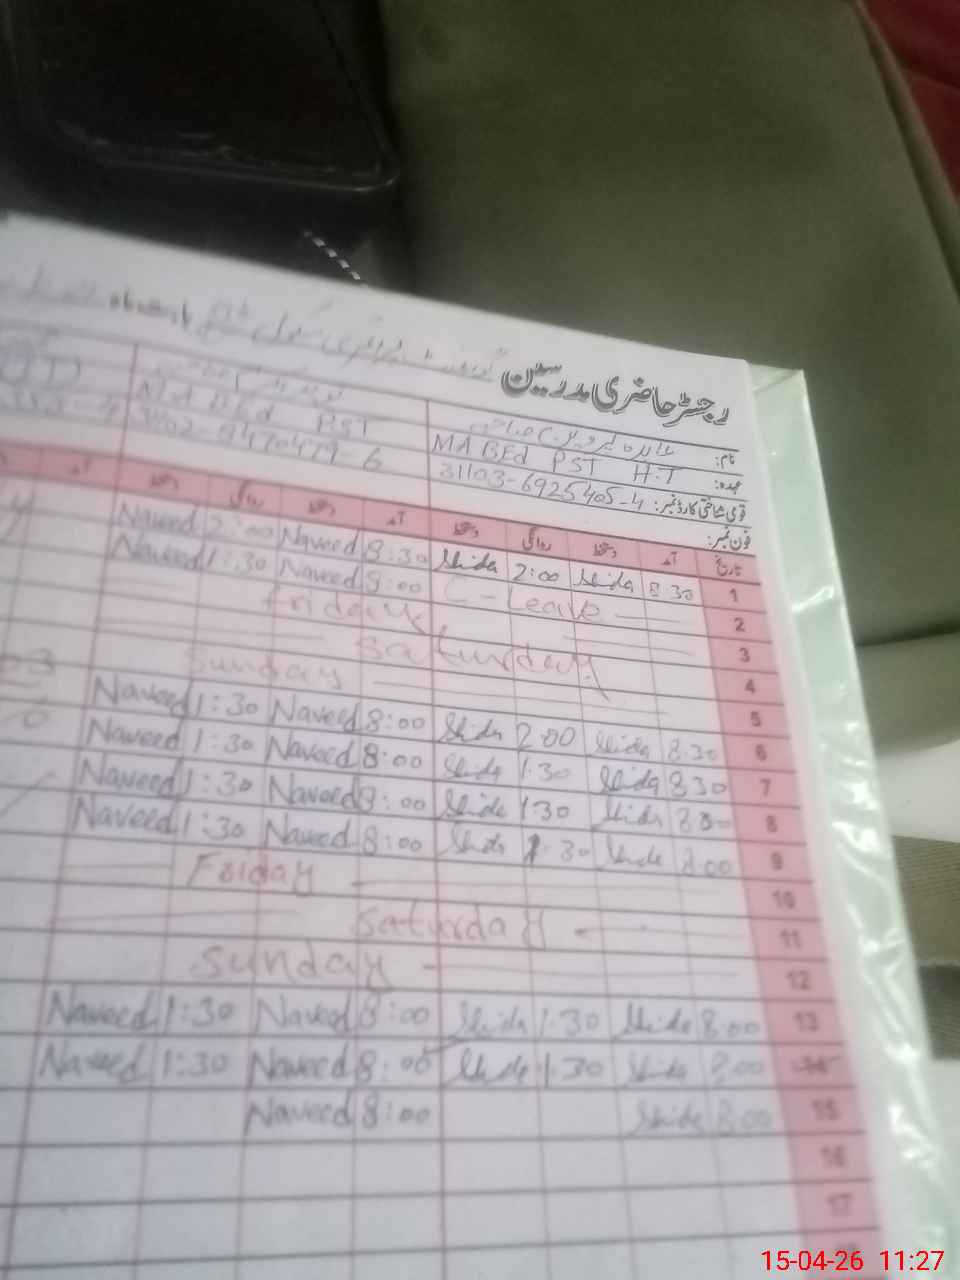 رجسٹر حاضری مدرسین
نام:
عہدہ: MA BEd PST H.T
M.A B.Ed PST
قومی شناختی کارڈ نمبر: 31103-6925405-4
فون نمبر:
تاریخ آمد دستخط روانگی دستخط آمد دستخط روانگی دستخط آمد
1 8:30 Shida 2:00 Shida 8:30 Naveed 2:00 Naveed
2 C-Leave 8:00 Naveed 1:30 Naveed
3 Friday
4 Saturday
5 Sunday
6 8:30 Shida 2:00 Shida 8:00 Naveed 1:30 Naveed
7 8:30 Shida 1:30 Shida 8:00 Naveed 1:30 Naveed
8 8:30 Shida 1:30 Shida 8:00 Naveed 1:30 Naveed
9 8:00 Shida 1:30 Shida 8:00 Naveed 1:30 Naveed
10 Friday
11 Saturday
12 Sunday
13 8:00 Shida 1:30 Shida 8:00 Naveed 1:30 Naveed
14 8:00 Shida 1:30 Shida 8:00 Naveed 1:30 Naveed
15 8:00 Shida 8:00 Naveed
16
17
15-04-26 11:27